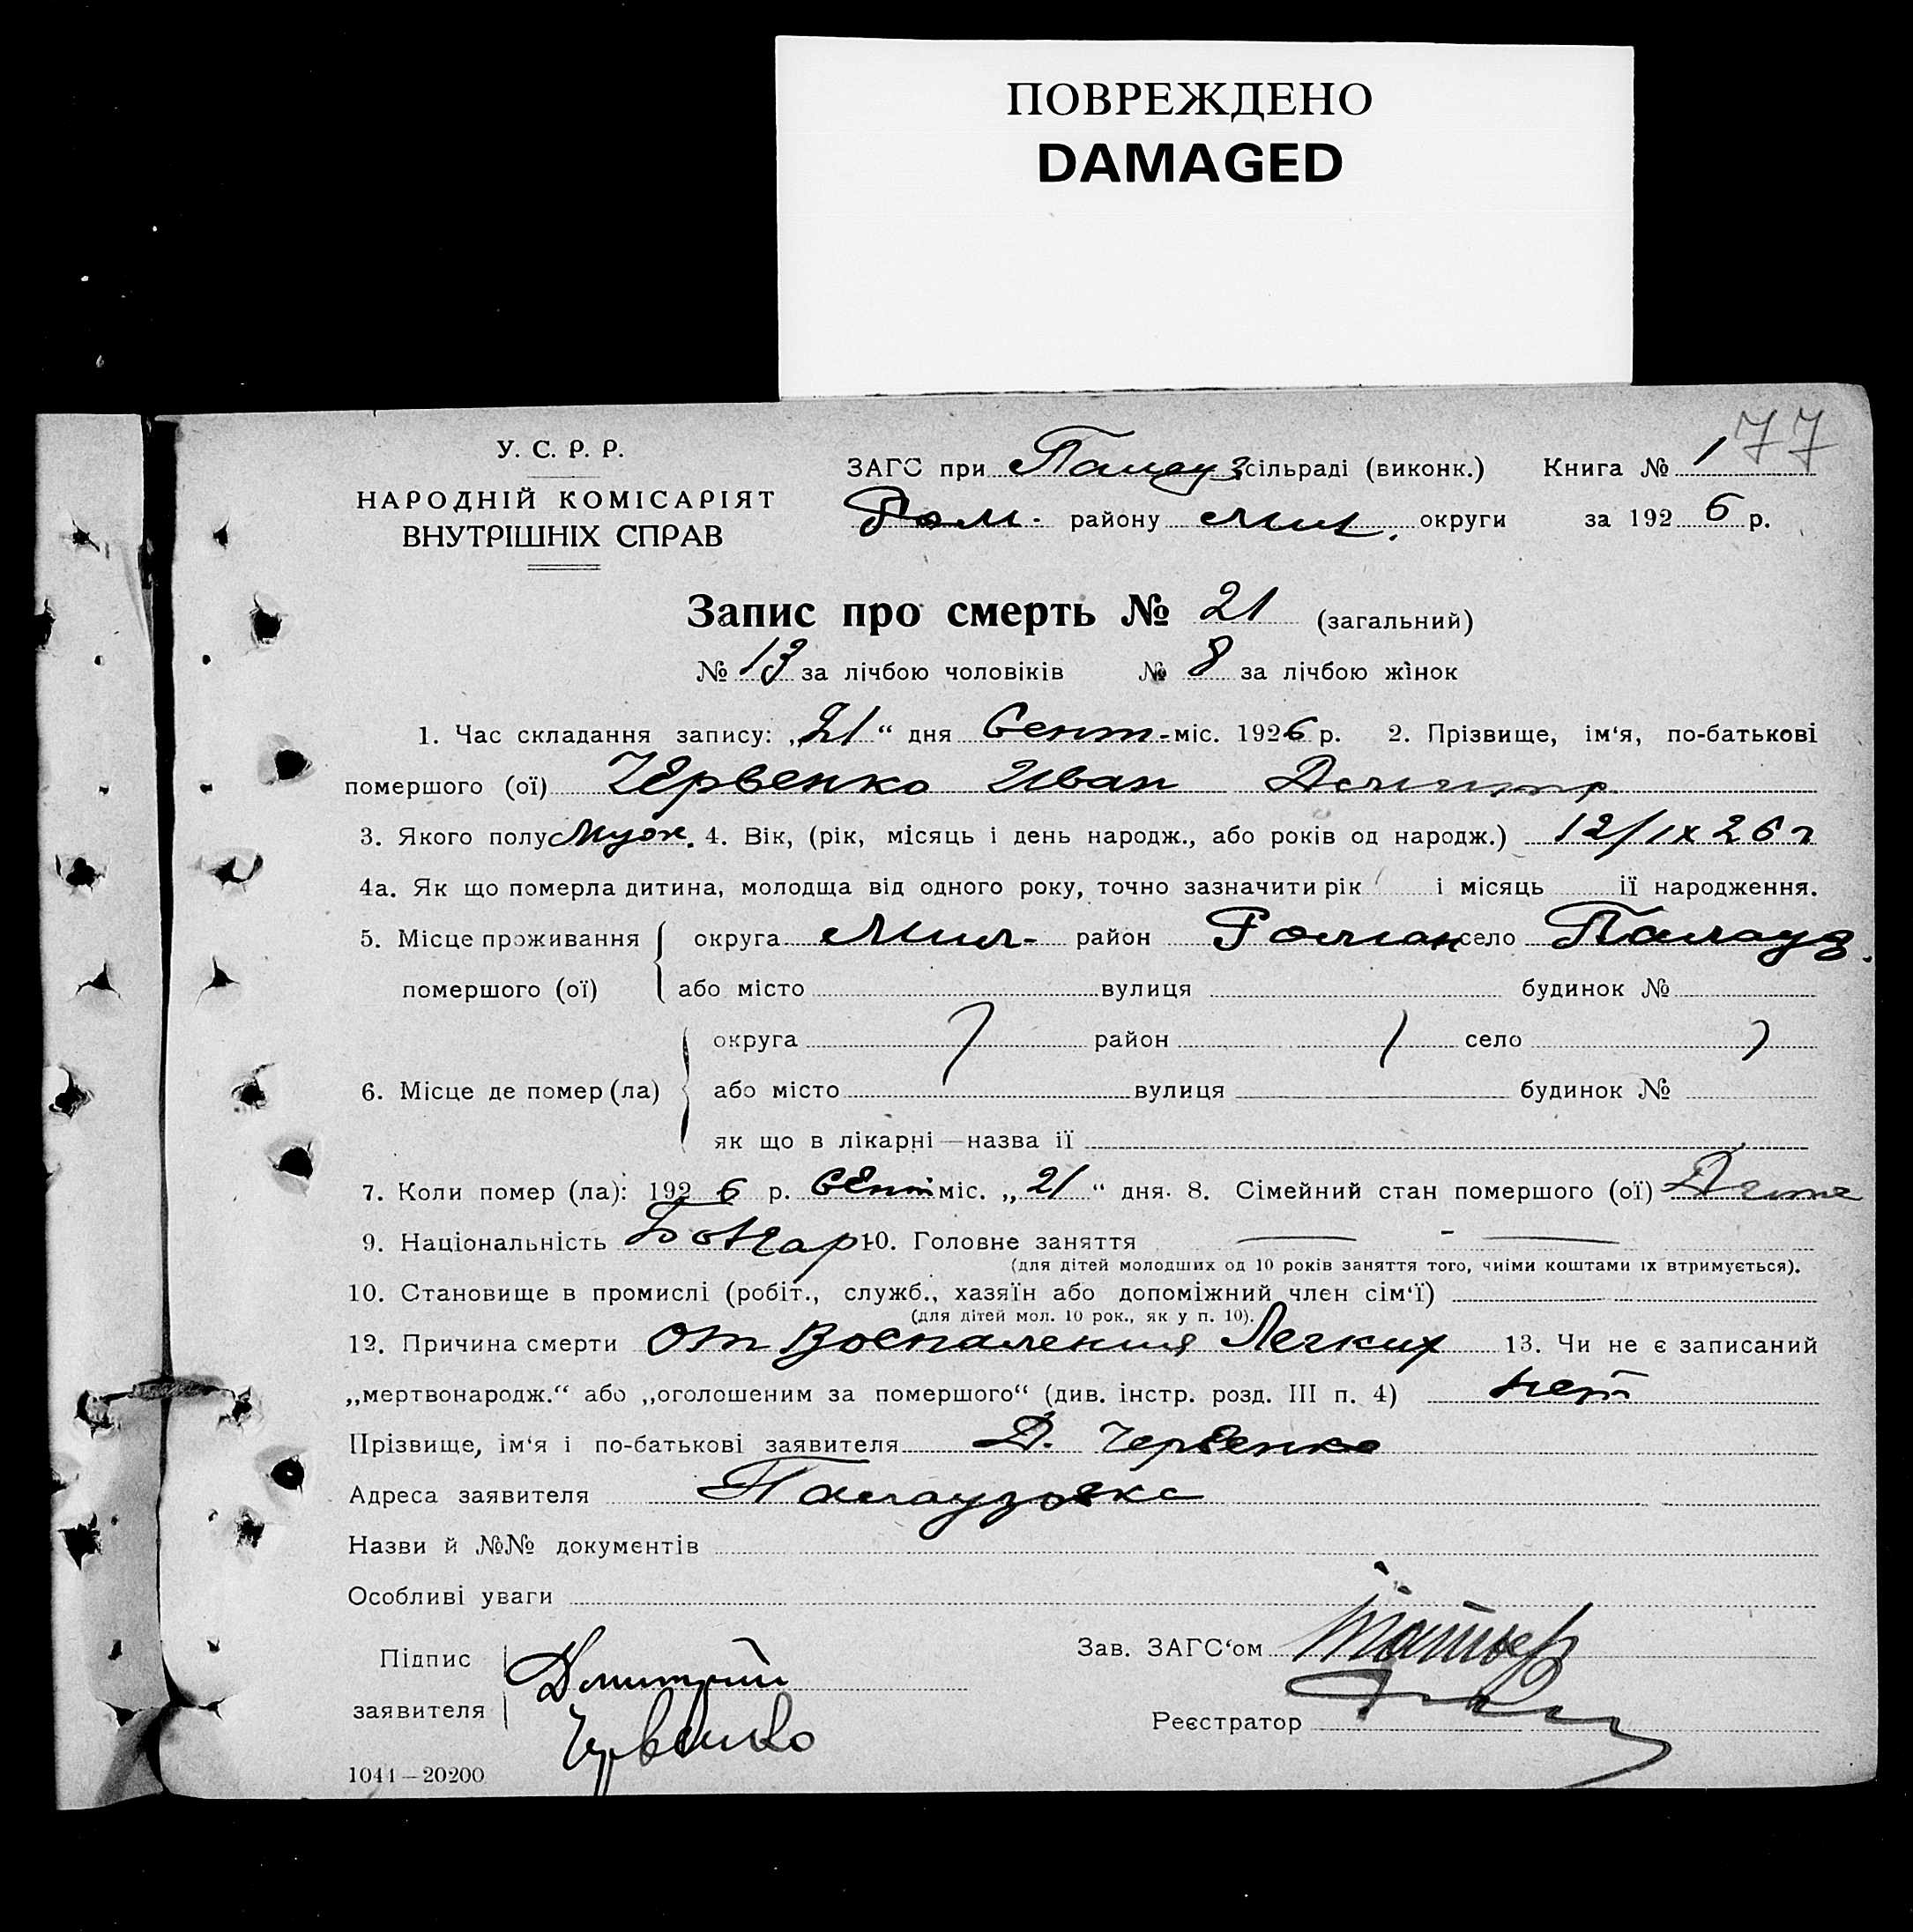 ПОВРЕЖДЕНО
DAMAGED
77
У. С. Р. Р.
НАРОДНІЙ КОМІСАРІЯТ
ВНУТРІШНІХ СПРАВ
ЗАГС при Палауз сільраді (виконк.) Книга № 1
Ром. району Мил. округи за 1926 р.
Запис про смерть № 21 (загальний)
№ 13 за лічбою чоловіків № 8 за лічбою жінок
1. Час складання запису: „21“ дня Сент. міс. 1926 р. 2. Прізвище, ім‘я, по-батькові
помершого (ої) Червенко Иван Дмитр.
3. Якого полу Муж. 4. Вік, (рік, місяць і день народж., або років од народж.) 12/IX 26 г
4а. Як що померла дитина, молодща від одного року, точно зазначити рік і місяць її народження.
5. Місце проживання округа Мил. район Роман село Палауз.
помершого (ої) або місто вулиця будинок №
округа район село
6. Місце де помер (ла) або місто вулиця будинок №
як що в лікарні — назва її
7. Коли помер (ла): 1926 р. Сент міс. „21“ дня. 8. Сімейний стан помершого (ої) Дите
9. Національність Болгар 10. Головне заняття
(для дітей молодших од 10 років заняття того, чиїми коштами їх втримується).
10. Становище в промислі (робіт., служб., хазяїн або допоміжний член сім‘ї)
(для дітей мол. 10 рок., як у п. 10).
12. Причина смерти от Воспаления Легких 13. Чи не є записаний
„мертвонародж.“ або „оголошеним за помершого“ (див. інстр. розд. III п. 4) нет
Прізвище, ім‘я і по-батькові заявителя Д. Червенко
Адреса заявителя Палаузовка
Назви й №№ документів
Особливі уваги
Підпис заявителя Дмитрий
Червенко
Зав. ЗАГС‘ом
Реєстратор
1041—20200